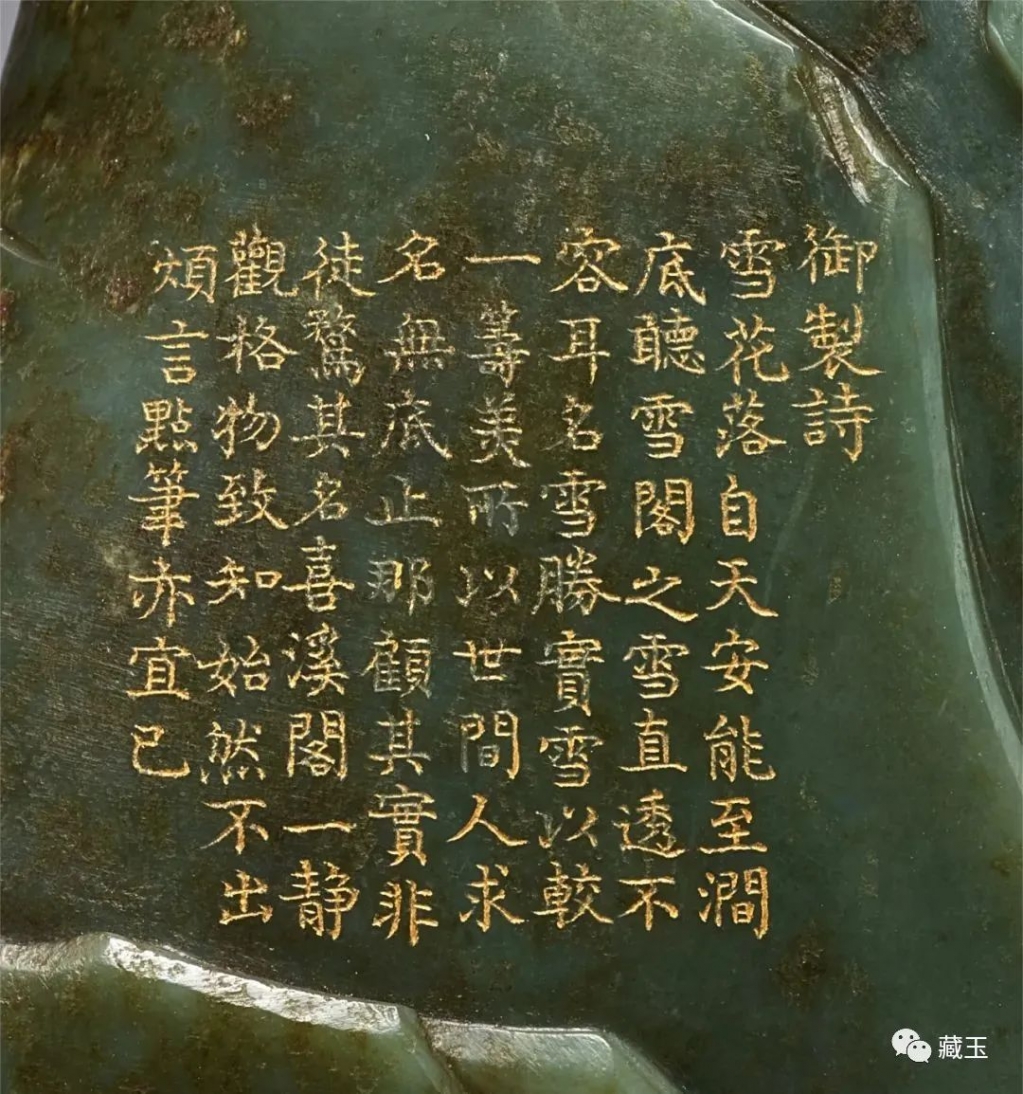 御製詩
雪花落自天安能至澗
底聽雪閣之雪直透不
容耳名雪勝實雪以較
一籌羙所以世間人求
名無底止那顧其實非
徒騖其名喜溪閣一静
觀格物致知始然不出
煩言點筆亦宜已
藏玉